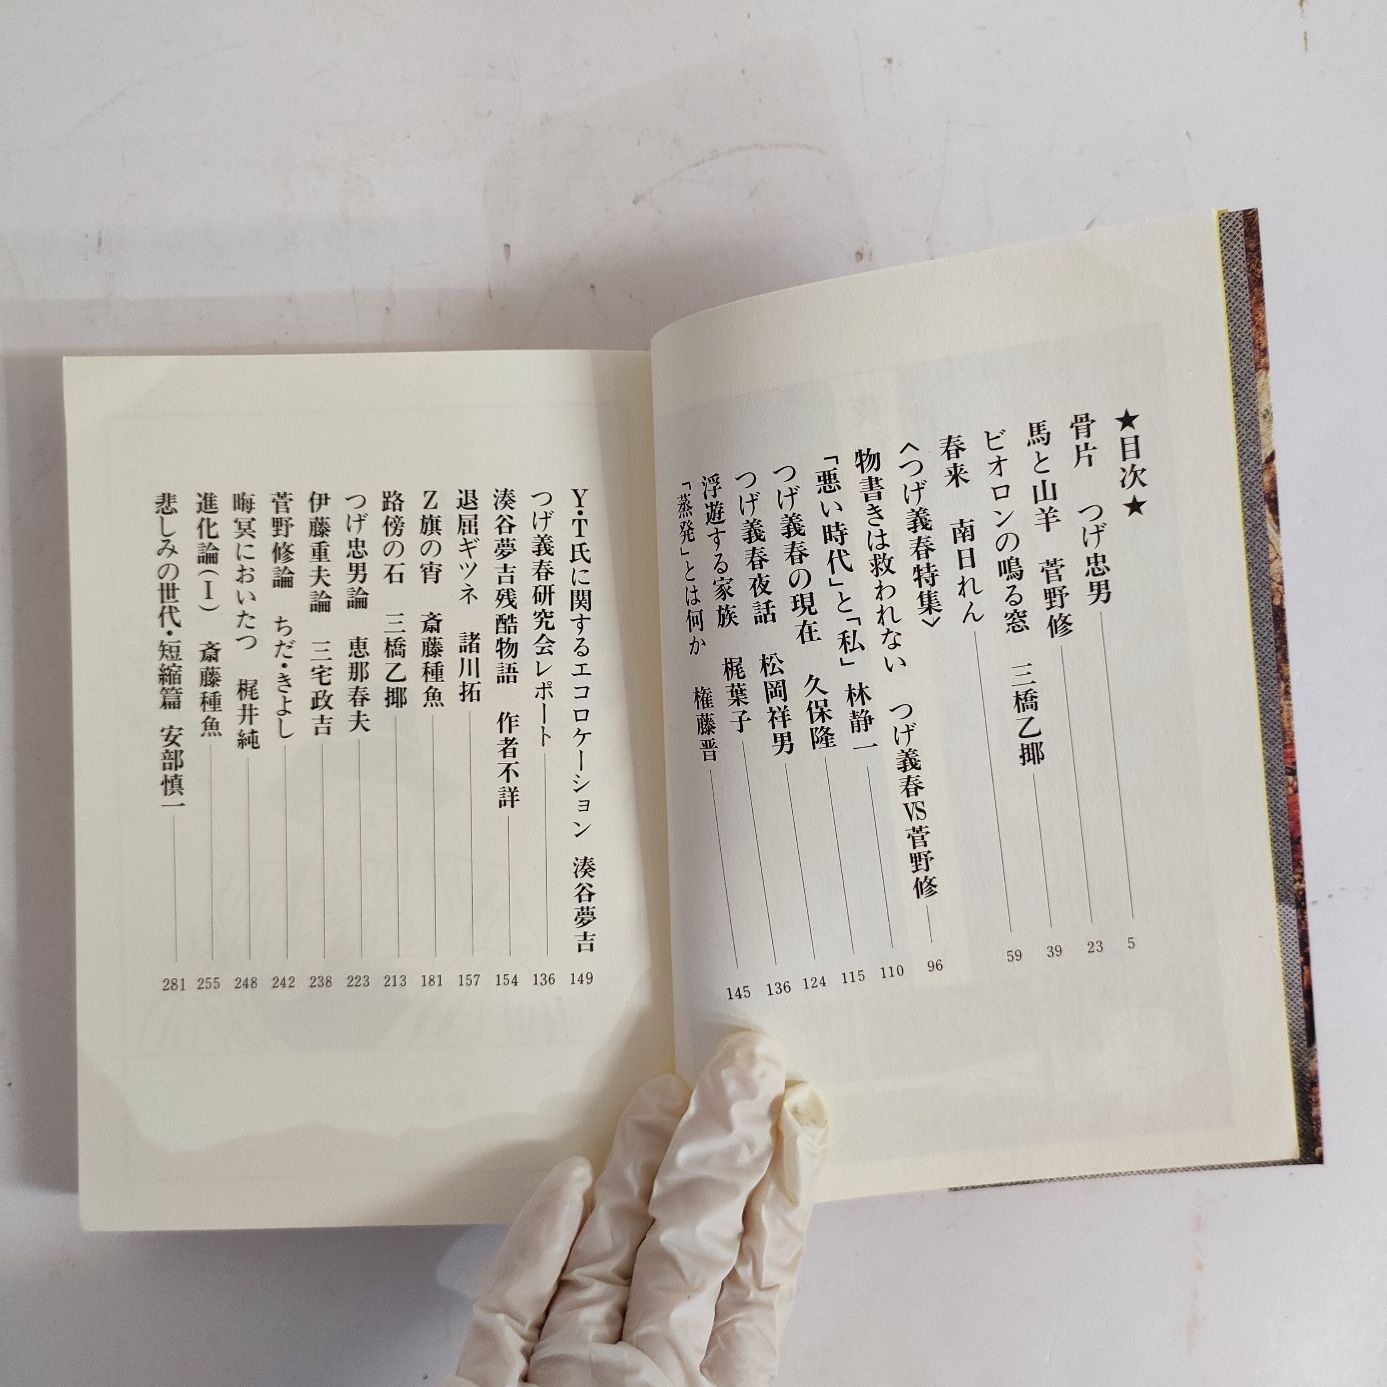 ★目次★
骨片 つげ忠男 5
馬と山羊 菅野修 23
ビオロンの鳴る窓 三橋乙揶 39
春来 南日れん 59
〈つげ義春特集〉
物書きは救われない つげ義春VS菅野修 96
「悪い時代」と「私」 林静一 110
つげ義春の現在 久保隆 115
つげ義春夜話 松岡祥男 124
浮遊する家族 梶葉子 136
「蒸発」とは何か 権藤晋 145
Y・T氏に関するエコロケーション 湊谷夢吉 149
つげ義春研究会レポート 136
湊谷夢吉残酷物語 作者不詳 154
退屈ギツネ 諸川拓 157
Z旗の宵 斎藤種魚 181
路傍の石 三橋乙揶 213
つげ忠男論 恵那春夫 223
伊藤重夫論 三宅政吉 238
菅野修論 ちだ・きよし 242
晦冥においたつ 梶井純 248
進化論(Ⅰ) 斎藤種魚 255
悲しみの世代・短縮篇 安部慎一 281